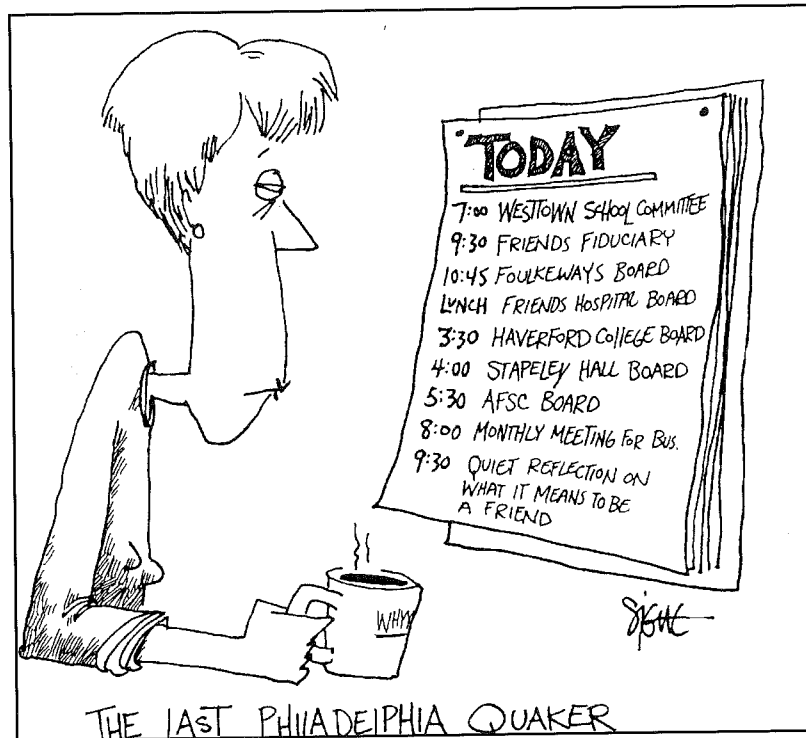 TODAY
7:00 WESTTOWN SCHOOL COMMITTEE
9:30 FRIENDS FIDUCIARY
10:45 FOULKEWAYS BOARD
LUNCH FRIENDS HOSPITAL BOARD
3:30 HAVERFORD COLLEGE BOARD
4:00 STAPELEY HALL BOARD
5:30 AFSC BOARD
8:00 MONTHLY MEETING FOR BUS.
9:30 QUIET REFLECTION ON
WHAT IT MEANS TO BE
A FRIEND
WHYY
THE LAST PHILADELPHIA QUAKER